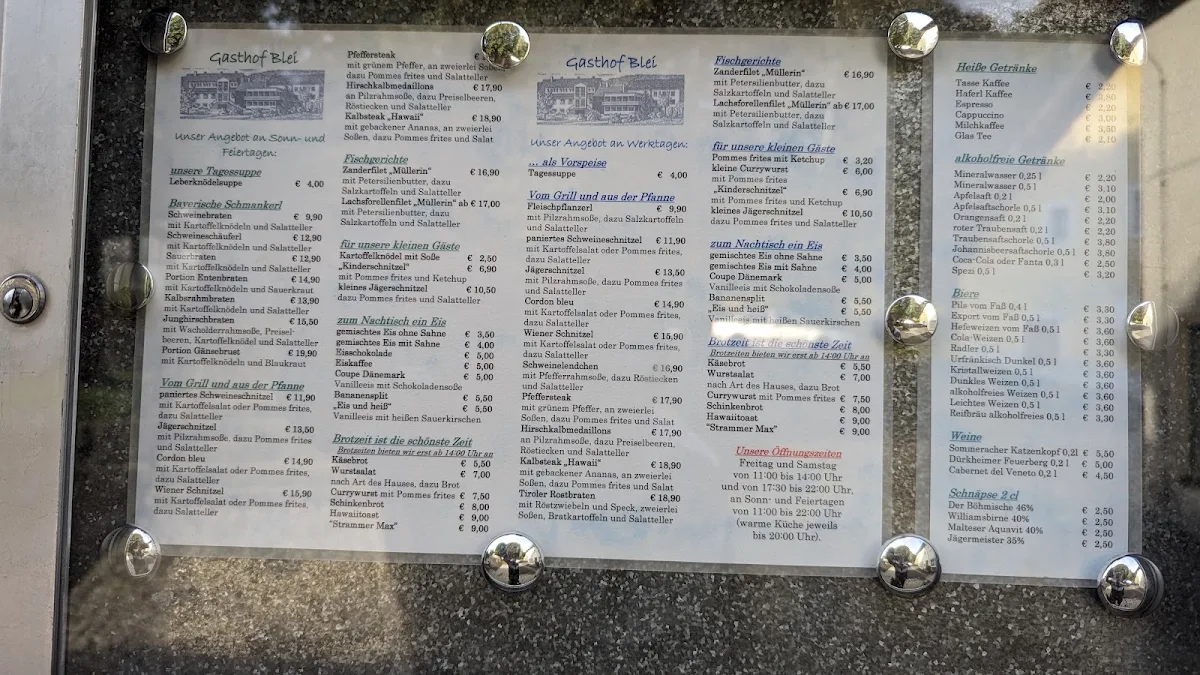 Gasthof Blei
Unser Angebot an Sonn- und
Feiertagen:
unsere Tagessuppe
Leberknödelsuppe € 4,00
Bayerische Schmankerl
Schweinebraten € 9,90
mit Kartoffelknödeln und Salatteller
Schweineschäuferl € 12,90
mit Kartoffelknödeln und Salatteller
Sauerbraten € 12,90
mit Kartoffelknödeln und Salatteller
Portion Entenbraten € 14,90
mit Kartoffelknödeln und Sauerkraut
Kalbsrahmbraten € 13,90
mit Kartoffelknödeln und Salatteller
Junghirschbraten € 15,50
mit Wacholderrahmsoße, Preisel-
beeren, Kartoffelknödel und Salatteller
Portion Gänsebrust € 19,90
mit Kartoffelknödeln und Blaukraut
Vom Grill und aus der Pfanne
paniertes Schweineschnitzel € 11,90
mit Kartoffelsalat oder Pommes frites,
dazu Salatteller
Jägerschnitzel € 13,50
mit Pilzrahmsoße, dazu Pommes frites
und Salatteller
Cordon bleu € 14,90
mit Kartoffelsalat oder Pommes frites,
dazu Salatteller
Wiener Schnitzel € 15,90
mit Kartoffelsalat oder Pommes frites,
dazu Salatteller
Pfeffersteak €
mit grünem Pfeffer, an zweierlei Soßen,
dazu Pommes frites und Salatteller
Hirschkalbmedaillons € 17,90
an Pilzrahmsoße, dazu Preiselbeeren,
Röstiecken und Salatteller
Kalbsteak „Hawaii" € 18,90
mit gebackener Ananas, an zweierlei
Soßen, dazu Pommes frites und Salat
Fischgerichte
Zanderfilet „Müllerin" € 16,90
mit Petersilienbutter, dazu
Salzkartoffeln und Salatteller
Lachsforellenfilet „Müllerin" ab € 17,00
mit Petersilienbutter, dazu
Salzkartoffeln und Salatteller
für unsere kleinen Gäste
Kartoffelknödel mit Soße € 2,50
„Kinderschnitzel" € 6,90
mit Pommes frites und Ketchup
kleines Jägerschnitzel € 10,50
dazu Pommes frites und Salatteller
zum Nachtisch ein Eis
gemischtes Eis ohne Sahne € 3,50
gemischtes Eis mit Sahne € 4,00
Eisschokolade € 5,00
Eiskaffee € 5,00
Coupe Dänemark € 5,00
Vanilleeis mit Schokoladensoße
Bananensplit € 5,50
„Eis und heiß" € 5,50
Vanilleeis mit heißen Sauerkirschen
Brotzeit ist die schönste Zeit
Brotzeiten bieten wir erst ab 14:00 Uhr an
Käsebrot € 5,50
Wurstsalat € 7,00
nach Art des Hauses, dazu Brot
Currywurst mit Pommes frites € 7,50
Schinkenbrot € 8,00
Hawaiitoast € 9,00
"Strammer Max" € 9,00
Gasthof Blei
Unser Angebot an Werktagen:
... als Vorspeise
Tagessuppe € 4,00
Vom Grill und aus der Pfanne
Fleischpflanzerl € 9,90
mit Pilzrahmsoße, dazu Salzkartoffeln
und Salatteller
paniertes Schweineschnitzel € 11,90
mit Kartoffelsalat oder Pommes frites,
dazu Salatteller
Jägerschnitzel € 13,50
mit Pilzrahmsoße, dazu Pommes frites
und Salatteller
Cordon bleu € 14,90
mit Kartoffelsalat oder Pommes frites,
dazu Salatteller
Wiener Schnitzel € 15,90
mit Kartoffelsalat oder Pommes frites,
dazu Salatteller
Schweinelendchen € 16,90
mit Pfefferrahmsoße, dazu Röstiecken
und Salatteller
Pfeffersteak € 17,90
mit grünem Pfeffer, an zweierlei
Soßen, dazu Pommes frites und Salat
Hirschkalbmedaillons € 17,90
an Pilzrahmsoße, dazu Preiselbeeren,
Röstiecken und Salatteller
Kalbsteak „Hawaii" € 18,90
mit gebackener Ananas, an zweierlei
Soßen, dazu Pommes frites und Salat
Tiroler Rostbraten € 18,90
mit Röstzwiebeln und Speck, zweierlei
Soßen, Bratkartoffeln und Salatteller
Fischgerichte
Zanderfilet „Müllerin" € 16,90
mit Petersilienbutter, dazu
Salzkartoffeln und Salatteller
Lachsforellenfilet „Müllerin" ab € 17,00
mit Petersilienbutter, dazu
Salzkartoffeln und Salatteller
für unsere kleinen Gäste
Pommes frites mit Ketchup € 3,20
kleine Currywurst € 6,00
mit Pommes frites
„Kinderschnitzel" € 6,90
mit Pommes frites und Ketchup
kleines Jägerschnitzel € 10,50
dazu Pommes frites und Salatteller
zum Nachtisch ein Eis
gemischtes Eis ohne Sahne € 3,50
gemischtes Eis mit Sahne € 4,00
Coupe Dänemark € 5,00
Vanilleeis mit Schokoladensoße
Bananensplit € 5,50
„Eis und heiß" € 5,50
Vanilleeis mit heißen Sauerkirschen
Brotzeit ist die schönste Zeit
Brotzeiten bieten wir erst ab 14:00 Uhr an
Käsebrot € 5,50
Wurstsalat € 7,00
nach Art des Hauses, dazu Brot
Currywurst mit Pommes frites € 7,50
Schinkenbrot € 8,00
Hawaiitoast € 9,00
"Strammer Max" € 9,00
Unsere Öffnungszeiten
Freitag und Samstag
von 11:00 bis 14:00 Uhr
und von 17:30 bis 22:00 Uhr,
an Sonn- und Feiertagen
von 11:00 bis 22:00 Uhr
(warme Küche jeweils
bis 20:00 Uhr).
Heiße Getränke
Tasse Kaffee € 2,20
Haferl Kaffee € 3,80
Espresso € 2,20
Cappuccino € 3,00
Milchkaffee € 3,50
Glas Tee € 2,10
alkoholfreie Getränke
Mineralwasser 0,25 l € 2,20
Mineralwasser 0,5 l € 3,10
Apfelsaft 0,2 l € 2,00
Apfelsaftschorle 0,5 l € 3,10
Orangensaft 0,2 l € 2,20
roter Traubensaft 0,2 l € 2,20
Traubensaftschorle 0,5 l € 3,80
Johannisbeersaftschorle 0,5 l € 3,80
Coca-Cola oder Fanta 0,3 l € 2,50
Spezi 0,5 l € 3,20
Biere
Pils vom Faß 0,4 l € 3,30
Export vom Faß 0,5 l € 3,30
Hefeweizen vom Faß 0,5 l € 3,60
Cola-Weizen 0,5 l € 3,60
Radler 0,5 l € 3,30
Urfränkisch Dunkel 0,5 l € 3,60
Kristallweizen 0,5 l € 3,60
Dunkles Weizen 0,5 l € 3,60
alkoholfreies Weizen 0,5 l € 3,60
Leichtes Weizen 0,5 l € 3,60
Reifbräu alkoholfreies 0,5 l € 3,30
Weine
Sommeracher Katzenkopf 0,2l € 5,50
Dürkheimer Feuerberg 0,2 l € 5,00
Cabernet del Veneto 0,2 l € 4,50
Schnäpse 2 cl
Der Böhmische 46% € 2,50
Williamsbirne 40% € 2,50
Malteser Aquavit 40% € 2,50
Jägermeister 35% € 2,50